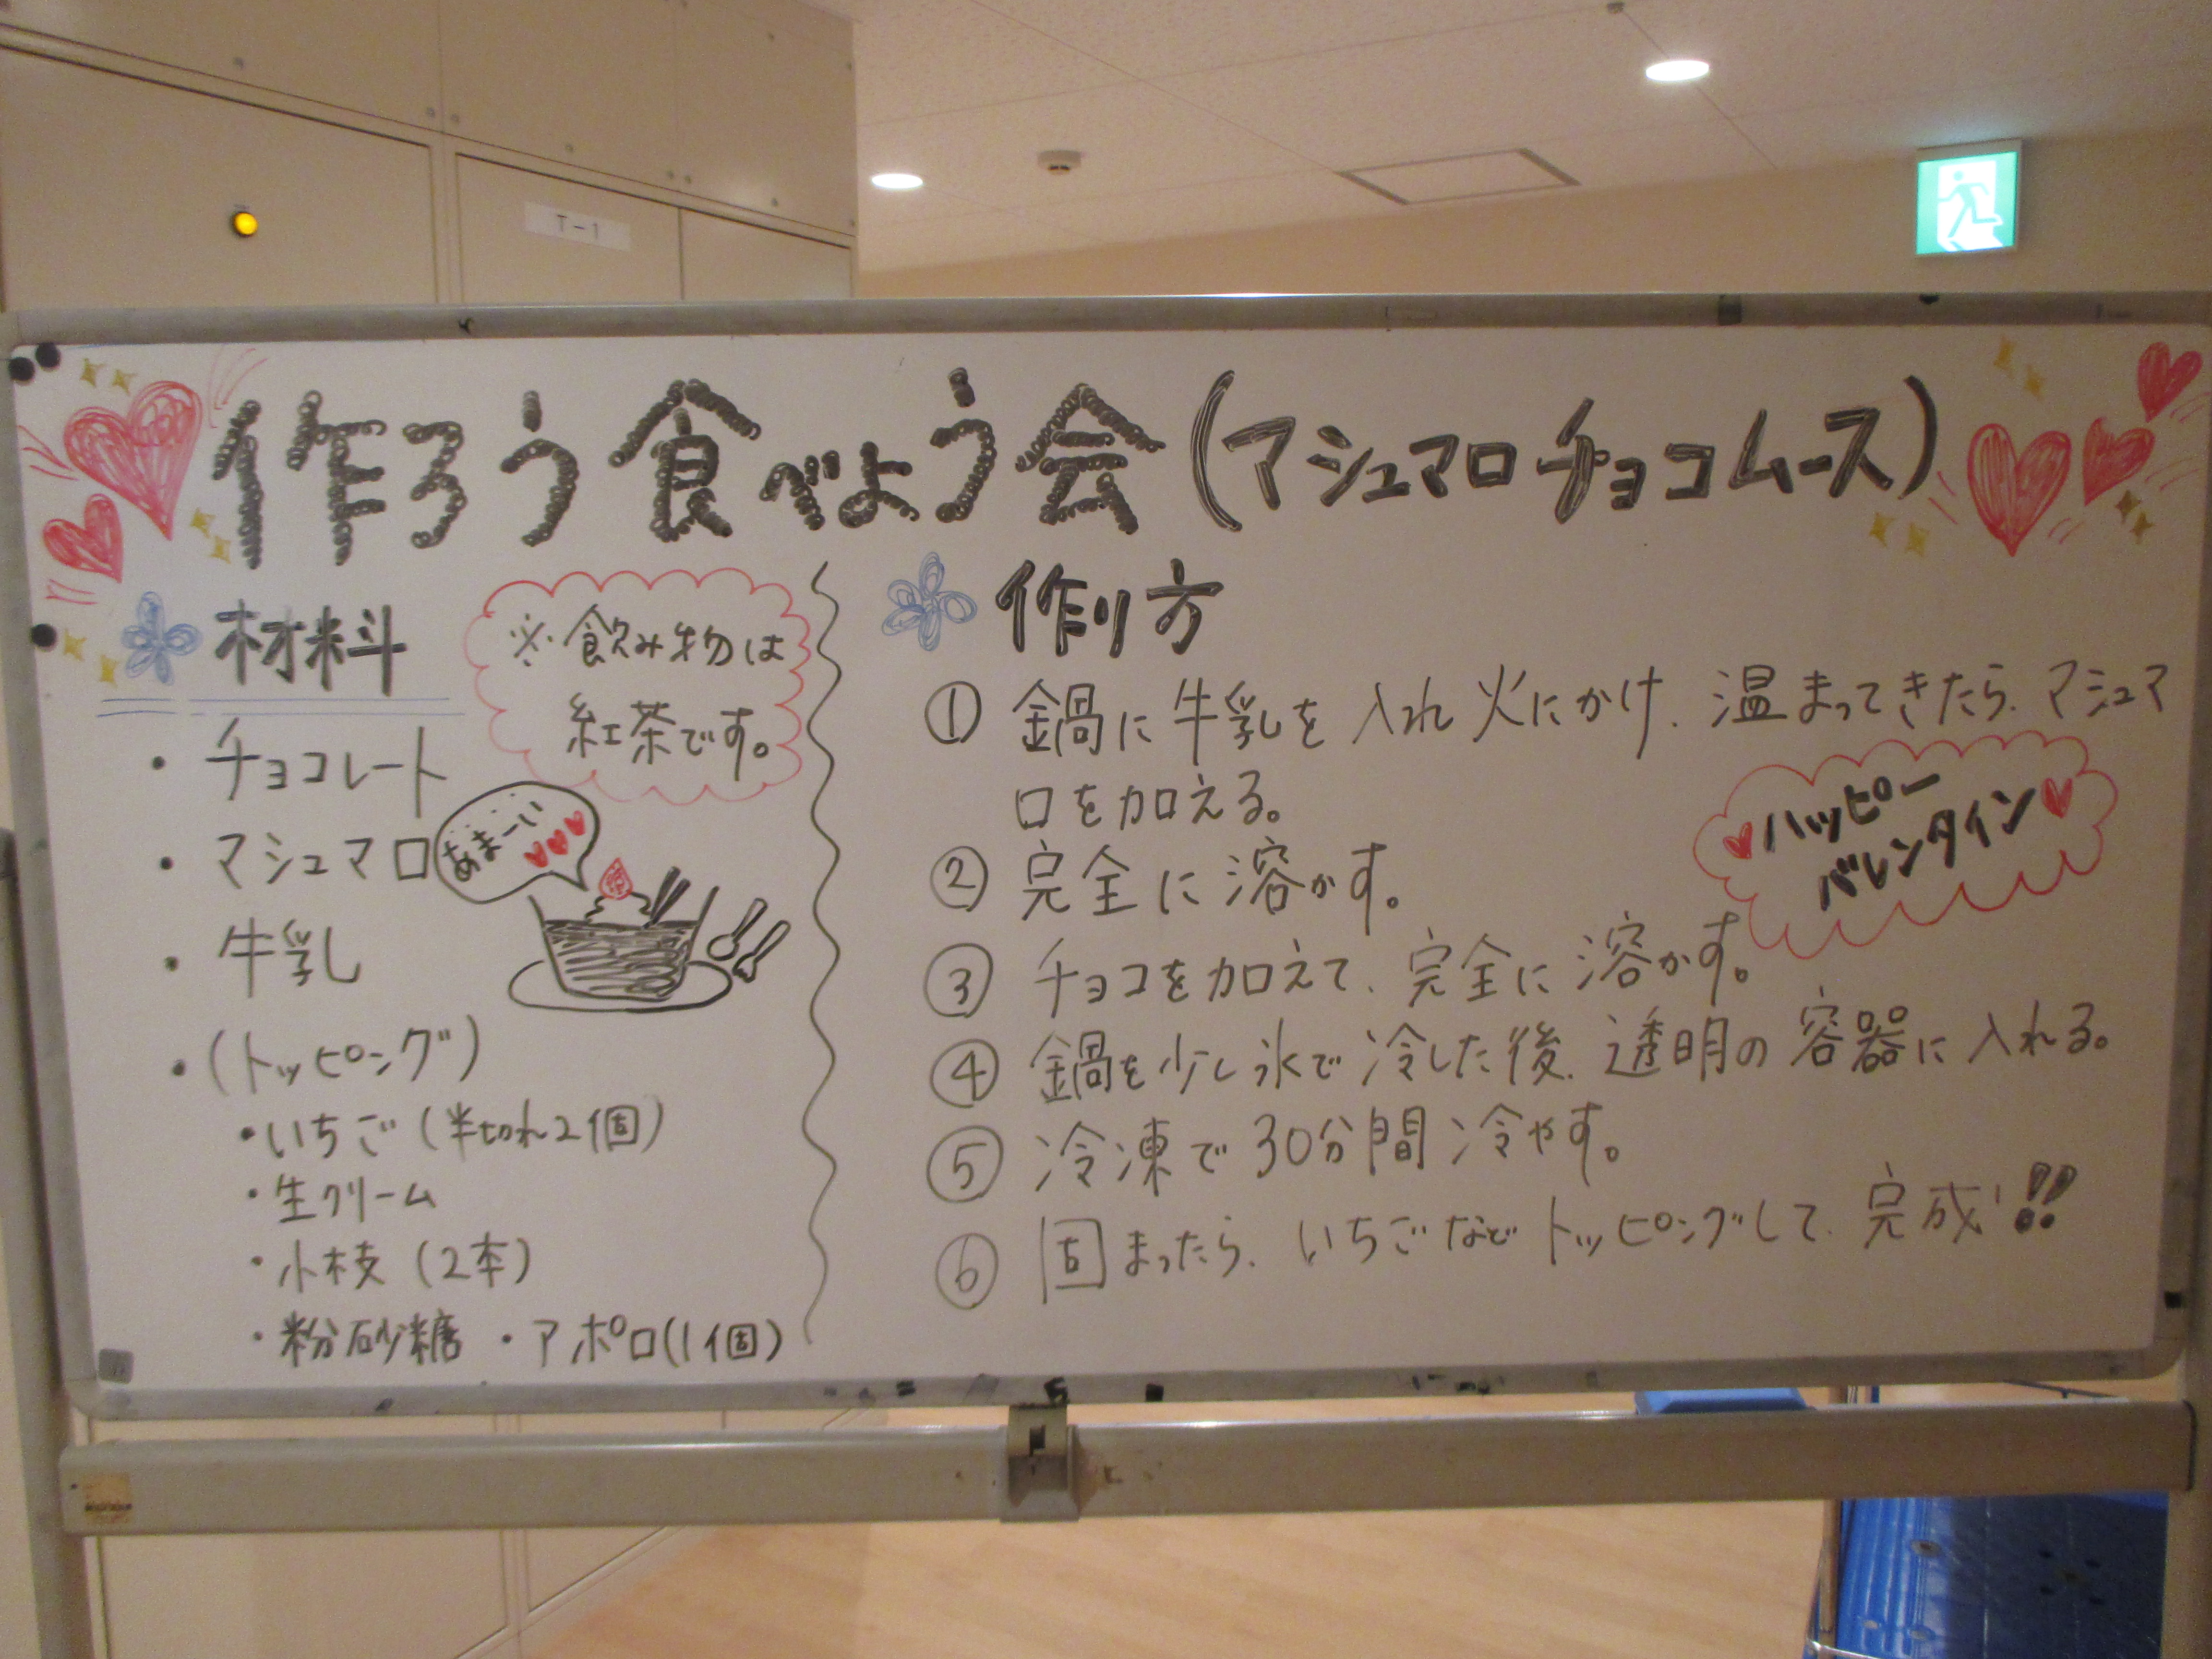 T-1
作ろう食べよう会(マシュマロチョコムース)
材料
※飲み物は
紅茶です。
・チョコレート
・マシュマロ
あまーい
・牛乳
・(トッピング)
・いちご(半切れ2個)
・生クリーム
・小枝(2本)
・粉砂糖 ・アポロ(1個)
作り方
① 鍋に牛乳を入れ火にかけ、温まってきたら、マシュマ
ロを加える。
ハッピー
バレンタイン
② 完全に溶かす。
③ チョコを加えて、完全に溶かす。
④ 鍋を少し氷で冷した後、透明の容器に入れる。
⑤ 冷凍で30分間冷やす。
⑥ 固まったら、いちごなどトッピングして、完成!!